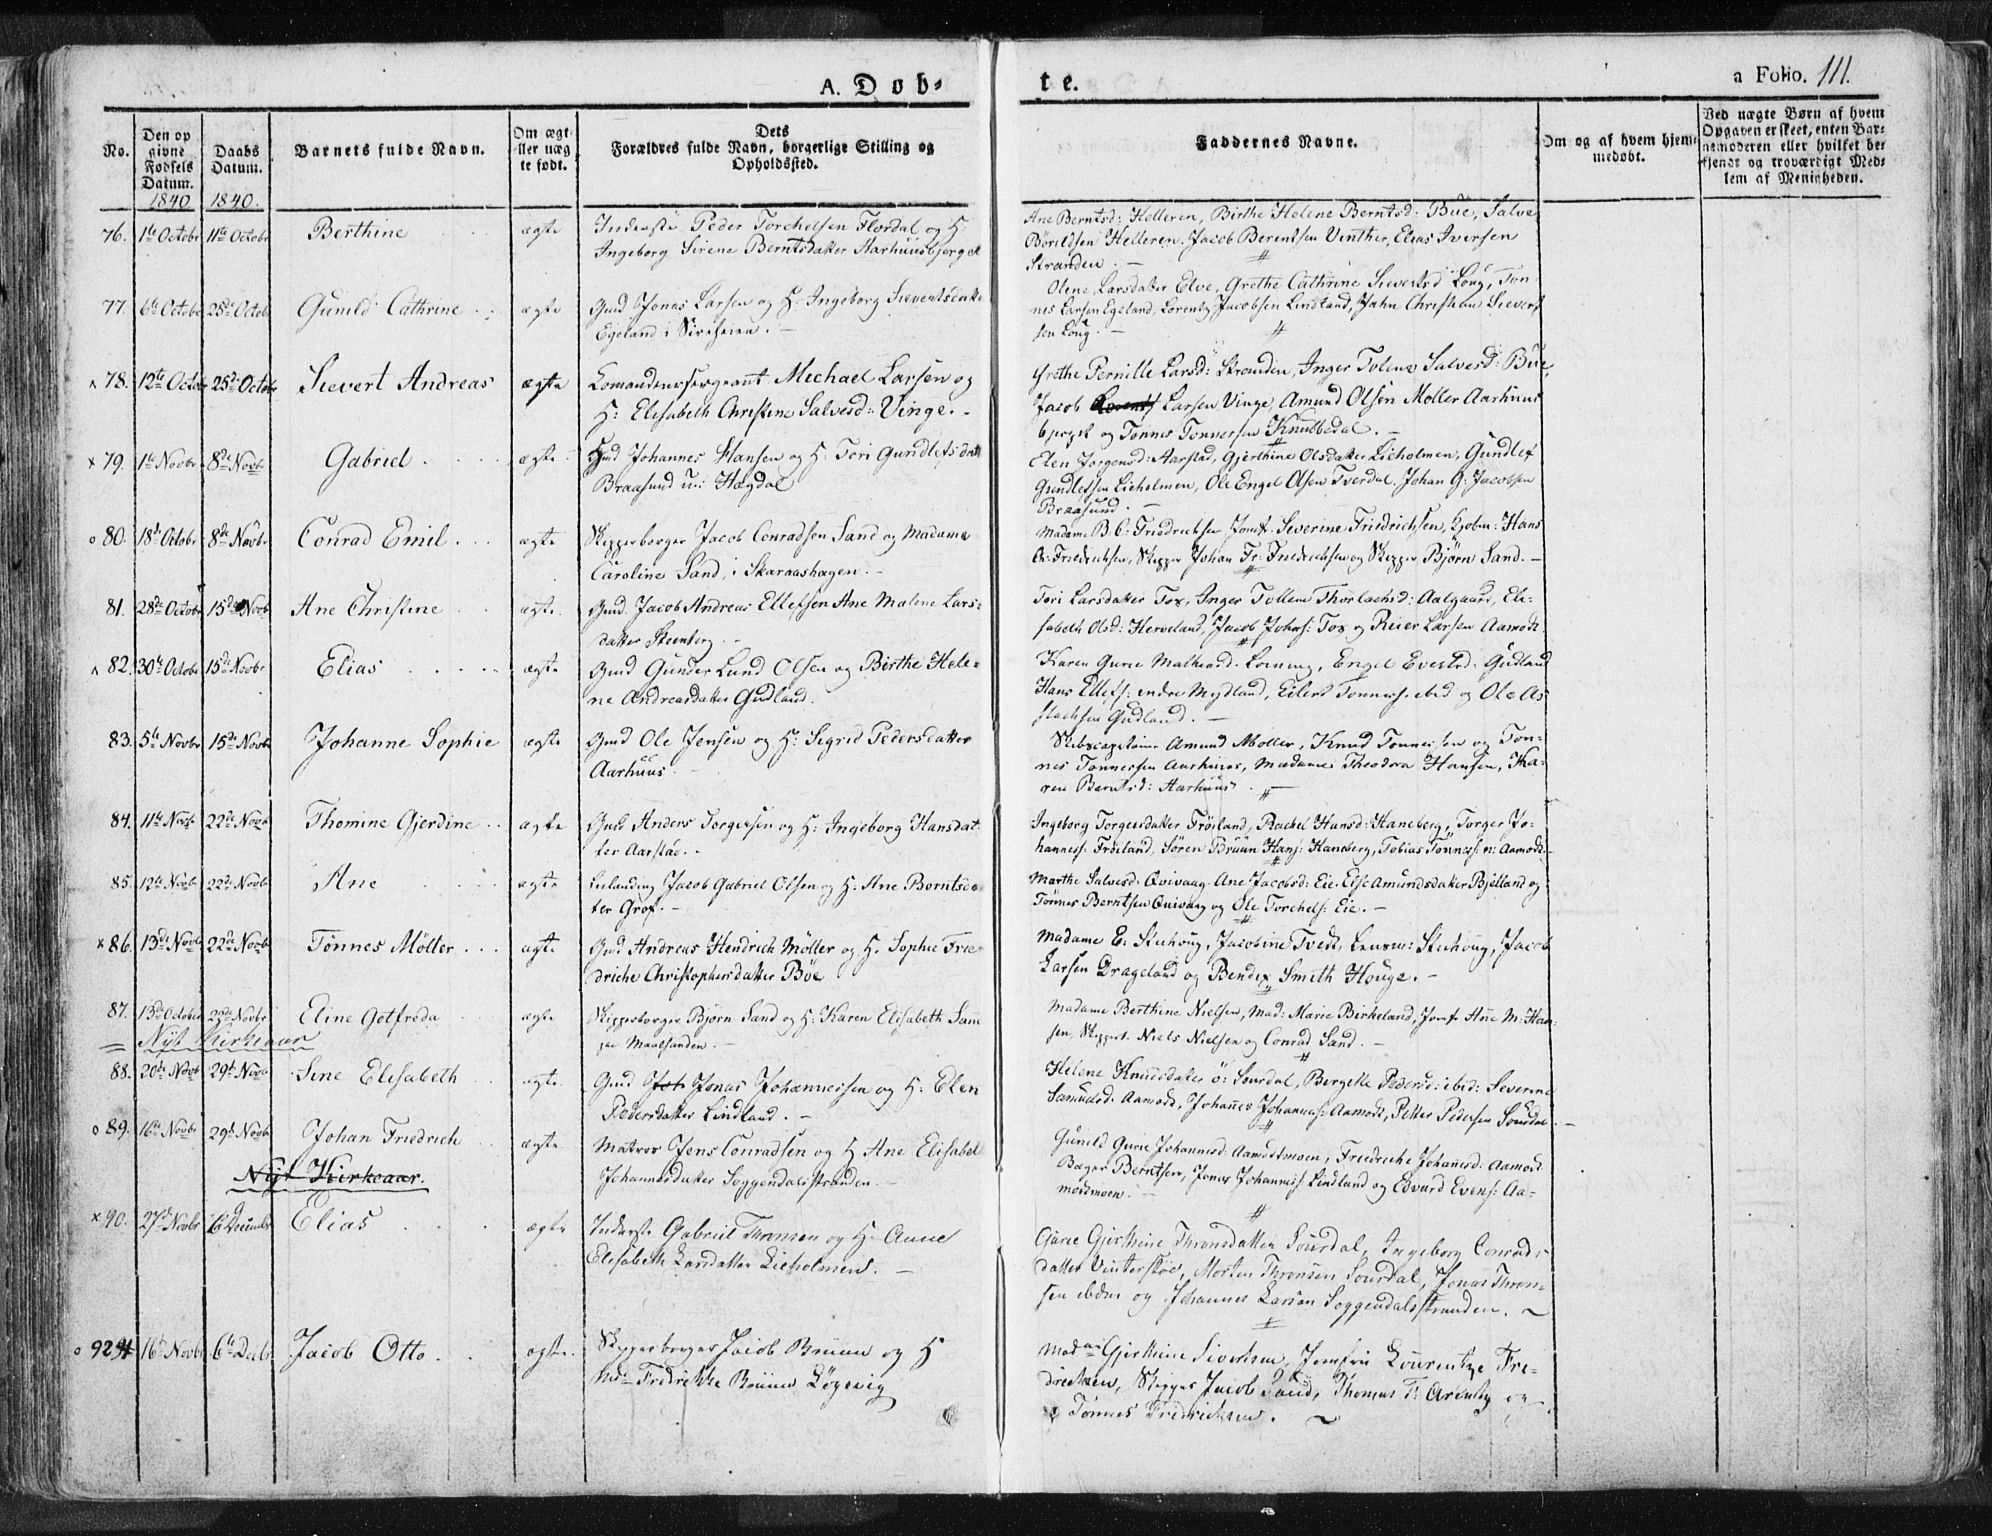 A. Døb-
te.
a Folio. 111.
No.
Den op
givne
Fødsels
Datum.
1840
Daabs
Datum.
1840.
Barnets fulde Navn.
Om ægte
eller uæg
te født.
Dets
Forældres fulde Navn, borgerlige Stilling og
Opholdssted.
Faddernes Navne.
Om og af hvem hjem-
medøbt.
Ved uægte Børn af hvem
Opgaven er skeet, enten Bar-
nemoderen eller hvilket be-
kjendt og troværdigt Med-
lem af Menigheden.
76. 1te Octobr 11te Octobr Berthine ægte
Inderste Peder Torchelsen Flordal og H:
Ingeborg Sirene Berntsdatter Aarhuusbjerget
Ane Berntsd: Helleren, Birthe Helene Berntsd: Bue, Salve
Börildsen Helleren. Jacob Berentsen Vinther, Elias Iversen
Stranden. —
77. 6te Octobr 25de Octobr Gunild Cathrine ægte
Gmd. Jonas Larsen og H. Ingeborg Sievertsdatter
Egeland i Sireheien. —
Olene Larsdatter Elve, Grethe Cathrine Sievertsd Loug, Ton
nes Larsen Egeland, Lorentz Jacobsen Lindland, Jahn Christian Sievert
sen Loug. —
78. 12te Octobr 25de Octobr Sievert Andreas ægte
Comandeursergeant Michael Larsen og
H: Elisabeth Christine Salvesd: Vinge. -
Grethe Pernille Larsd: Stranden, Inger Toline Salvesd: Bue,
Jacob Larsen Vinge, Amund Olsen Møller Aarhuus
bjerget og Tönnes Tönnesen Knubedal. —
79. 1te Novbr 8de Novbr Gabriel ægte
Gmd Johannes Hansen og H. Tori Gundlefsdatt
Braasund u: Hægdal
Elen Jorgensd: Aarstad, Gjerthine Olsdatter Lieholmen, Gundlef
Gundlefsen Lieholmen, Ole Engel Olsen Tverdal. Johan G. Jacobsen
Braasund. —
80. 18de Octobr 8de Novbr Conrad Emil ægte
Skipperborger Jacob Conradsen Sand og Madame
Caroline Sand, i Skaraashagen. —
Madame B. C. Friedrichsen Jomf. Severine Friedrichsen, Kjobm: Hans
A: Friedrichsen, Skipper Johan Fr: Friedrichsen og Skipper Bjørn Sand. —
81. 28de Octobr 15de Novb Ane Christine ægte
Gmd. Jacob Andreas Ellefsen Ane Malene Lars-
datter Steenberg. —
Tori Larsdatter Tox, Inger Tollene Thorlachsd: Aalgaard, Eli-
sabeth Olsd: Herveland, Jacob Johns: Tox og Reier Larsen Aamodt.
82. 30te Octobr 15de Novbr Elias ægte
Gmd Gunder Lund Olsen og Birthe Hele-
ne Andreasdatter Gudland.
Karen Gurie Mathead. Loening, Engel Evertsd: Gudland
Hans Ellefs: endre Mydland, Eilert Tonness. ibid og Ole As
slachsen Gudland. —
83. 5te Novbr 15de Novbr Johanne Sophie ægte
Gmd Ole Jensen og H: Sigrid Pedersdatter
Aarhuus.
Skibscapitaine Amund Møller, Knud Tonnessen og Ton-
nes Tonnessen Aarhuus, Madame Theodora Hansen, Ka-
ren Berntsd: Aarhuus. —
84. 11te Novbr 22de Novbr Thomine Gjerdine ægte
Gmd Anders Torgersen og H: Ingeborg Hansdat
ter Aarstad. —
Ingeborg Torgersdatter Frøiland, Rachel Hansd: Haneberg, Torger Jo-
hanness: Frøiland, Søren Bruun Hans: Haneberg, Tobias Tønness: n: Aamodt.
85. 12te Novbr 22de Novbr Ane ægte
Leilænding Jacob Gabriel Olsen og H. Ane Berntsda
ter Grof. —
Marthe Salvesd: Qvivaag. Ane Jacobsd: Eie. Else Amundsdatter Bjelland og
Tønnes Berntsen Qvivaag og Ole Torchels: Eie. —
86. 13de Novbr 22de Novbr Tønnes Møller ægte
Gmd Andreas Hendrich Møller og H. Sophie Frie
driche Christophersdatter Böe
Madame E: Steehoug, Jacobine Tvedt, Lensm: Steehoug, Jacob
Larsen Drageland og Bendix Smith Houge. —
87. 13de October 22de Novbr Eline Gotfreda ægte
Skipperborger Bjørn Sand og H: Karen Elisabeth Sand
paa Maalsanden. —
Madame Berthine Nielsen, Mad: Marie Birkeland, Jomf Ane M: Han-
sen, Skippert. Niels Nielsen og Conrad Sand. —
Nyt Kirkeaar
88. 20de Novb 29de Novbr Sine Elisabeth ægte
Gmd Jonas Johannessen og H: Elen
Pedersdatter Lindland. —
Helene Knudsdatter ö: Sourdal, Bergette Pedersd: ibid: Severine
Samuelsd. Aamodt, Johannes Johannes: Aamodt, Petter Pedersen Sourdal. —
89. 16de Novbr 29de Novbr Johan Friedrich ægte
Matros Jens Conradsen og H Ane Elisabet
Johannesdatter Soggendalsstranden. —
Gunild Gurie Johannesd: Aamodtmoen, Friederiche Johannesd: Aamodt
Berntsen, Jonas Johanness Lindland og Edvard Evens: Aa-
modtmoen. —
Nyt Kirkeaar.
90. 27de Novbr 6te Decembr Elias ægte
Inderste Gabriel Thronsen og H Anne
Elisabeth Larsdatter Lieholmen. —
Gurie Gjerthine Thronsdatter Sourdal, Ingeborg Conrads-
datter Vinterstøe, Morten Thronsen Sourdal, Jonas Thron-
sen ibdm og Johannes Larsen Soggendalsstranden. ~
92 16de Novbr 6te Decbr Jacob Otto ægte
Skipperborger Jacob Bruun og H
Md. Fredrikke Bruun Løgevig
Madme Gjerthine Sivertsen, Jomfru Lourentze Fre-
dricksen, Skipper Jacob Sand, Thomas T: Arentz og
Tønnes Fredricksen. ~